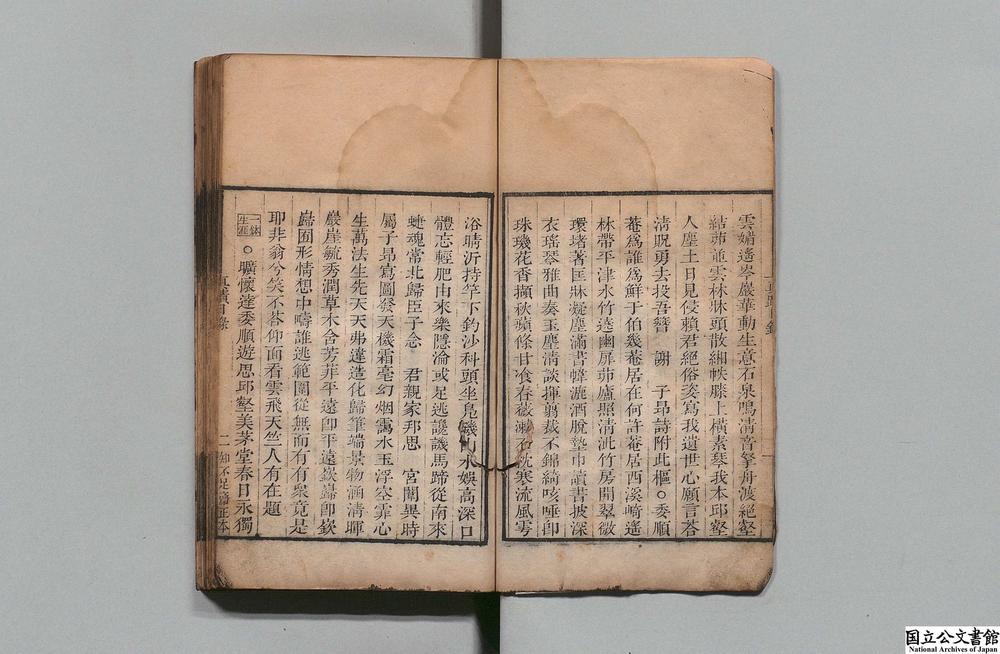 雲嬌遙岑巖華動生意石泉鳴清音拏舟渡絕壑
結茆並雲林牀頭散緗帙膝上橫素琴我本邱壑
人塵土日見侵賴君絕俗姿寫我遺世心願言荅
淸貺勇去投吾簪 子昂詩附此樞○委順
菴爲誰爲鮮于伯幾菴居在何許菴居西溪﨑遙
林帶平津水竹遶幽屏茆廬照淸沘竹房開翠微
環堵著匡牀凝塵滿書幃漉酒脫墊巾讀書披深
衣瑤琴雅曲奏玉麈淸談揮翦裁不錦綺咳唾卽
珠璣花香擷秋蘋條甘食春薇漱石枕寒流風雩
浴晴沂持竿下釣沙科頭坐見磯 水娛高深口
體忘輕肥由來樂隱淪或足逃譏馬蹄從南來
蜨魂常北歸臣子念 君親家邦思 宮闈異時
屬子昂寫圖發天機霜毫幻烟靄水玉浮空霏心
生萬法生先天天弗違造化歸筆端景物涵淸暉
巖崖毓秀潤草木含芳菲平遠卽平遠嶔歸卽嶔
巋囿形情想中疇誰逃範圍從無而有有衆竟是
耶非翁兮笑不荅仰面看雲飛天竺人有在題
一鉢生涯○曠懷達委順遊思邱壑美茅堂春日永獨
眞蹟日錄
二 知不足齋正本
國立公文書館
National Archives of Japan